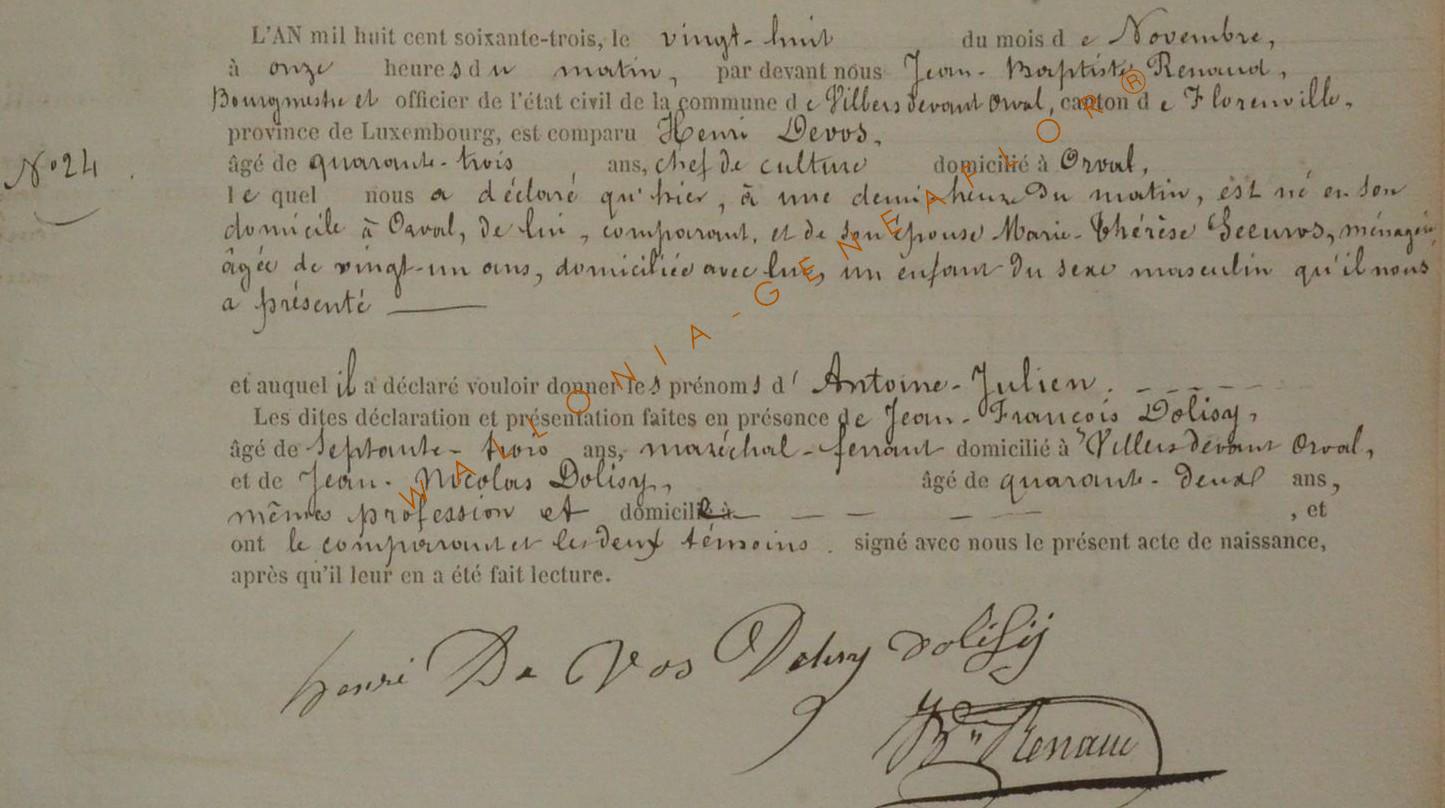 L'AN mil huit cent soixante-trois, le vingt-huit du mois de Novembre,
à onze heures du matin, par devant nous Jean-Baptiste Renaud,
Bourgmestre et officier de l'état civil de la commune de Villers devant Orval, canton de Florenville,
province de Luxembourg, est comparu Henri Devos,
N° 24
âgé de quarante-trois ans, chef de culture domicilié à Orval,
lequel nous a déclaré qu'hier, à une demi heure du matin, est né en son
domicile à Orval, de lui, comparant, et de son épouse Marie-Thérèse Seeuws, ménagère,
âgée de vingt-un ans, domiciliée avec lui, un enfant du sexe masculin qu'il nous
a présenté
et auquel il a déclaré vouloir donner les prénoms d'Antoine-Julien.
Les dites déclaration et présentation faites en présence de Jean-François Dolisy,
âgé de septante-trois ans, maréchal-ferrant domicilié à Villers devant Orval,
et de Jean-Nicolas Dolisy, âgé de quarante-deux ans,
mêmes profession et domicile à , et
ont le comparant et les deux témoins. signé avec nous le présent acte de naissance,
après qu'il leur en a été fait lecture.
henri De Vos Dolisy dolisij
Bte Renaud
WALLONIA-GENEAPLOR®